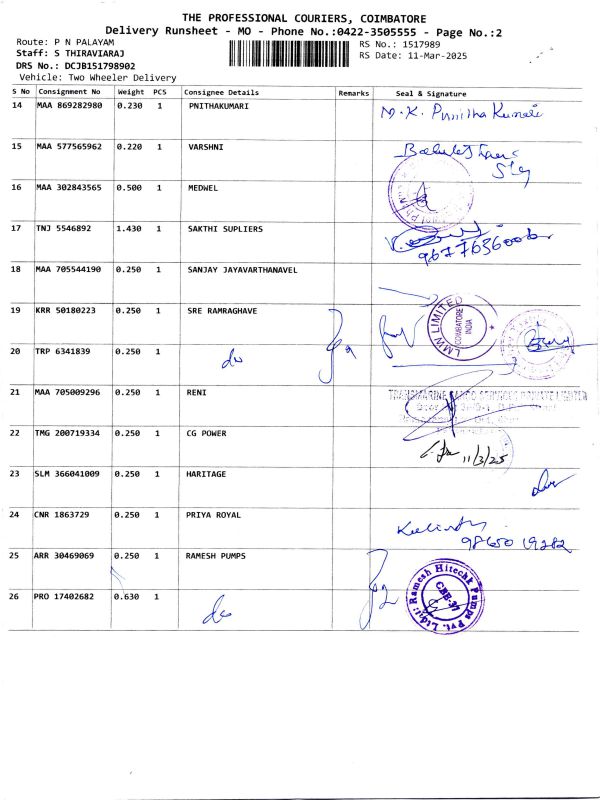 THE PROFESSIONAL COURIERS, COIMBATORE
Delivery Runsheet - MO - Phone No.:0422-3505555 - Page No.:2
Route: P N PALAYAM
Staff: S THIRAVIARAJ
DRS No.: DCJB151798902
Vehicle: Two Wheeler Delivery
RS No.: 1517989
RS Date: 11-Mar-2025
S No Consignment No Weight PCS Consignee Details Remarks Seal & Signature
14 MAA 869282980 0.230 1 PNITHAKUMARI M.K. Punitha Kumari
15 MAA 577565962 0.220 1 VARSHNI
16 MAA 302843565 0.500 1 MEDWEL
17 TNJ 5546892 1.430 1 SAKTHI SUPLIERS
18 MAA 705544190 0.250 1 SANJAY JAYAVARTHANAVEL
19 KRR 50180223 0.250 1 SRE RAMRAGHAVE LMW LIMITED COIMBATORE INDIA
20 TRP 6341839 0.250 1 do
21 MAA 705009296 0.250 1 RENI
22 TMG 200719334 0.250 1 CG POWER 11/3/25
23 SLM 366041009 0.250 1 HARITAGE
24 CNR 1863729 0.250 1 PRIYA ROYAL
25 ARR 30469069 0.250 1 RAMESH PUMPS Ramesh Hitechh Pumps Pvt. Ltd. CBE-37
26 PRO 17402682 0.630 1 do